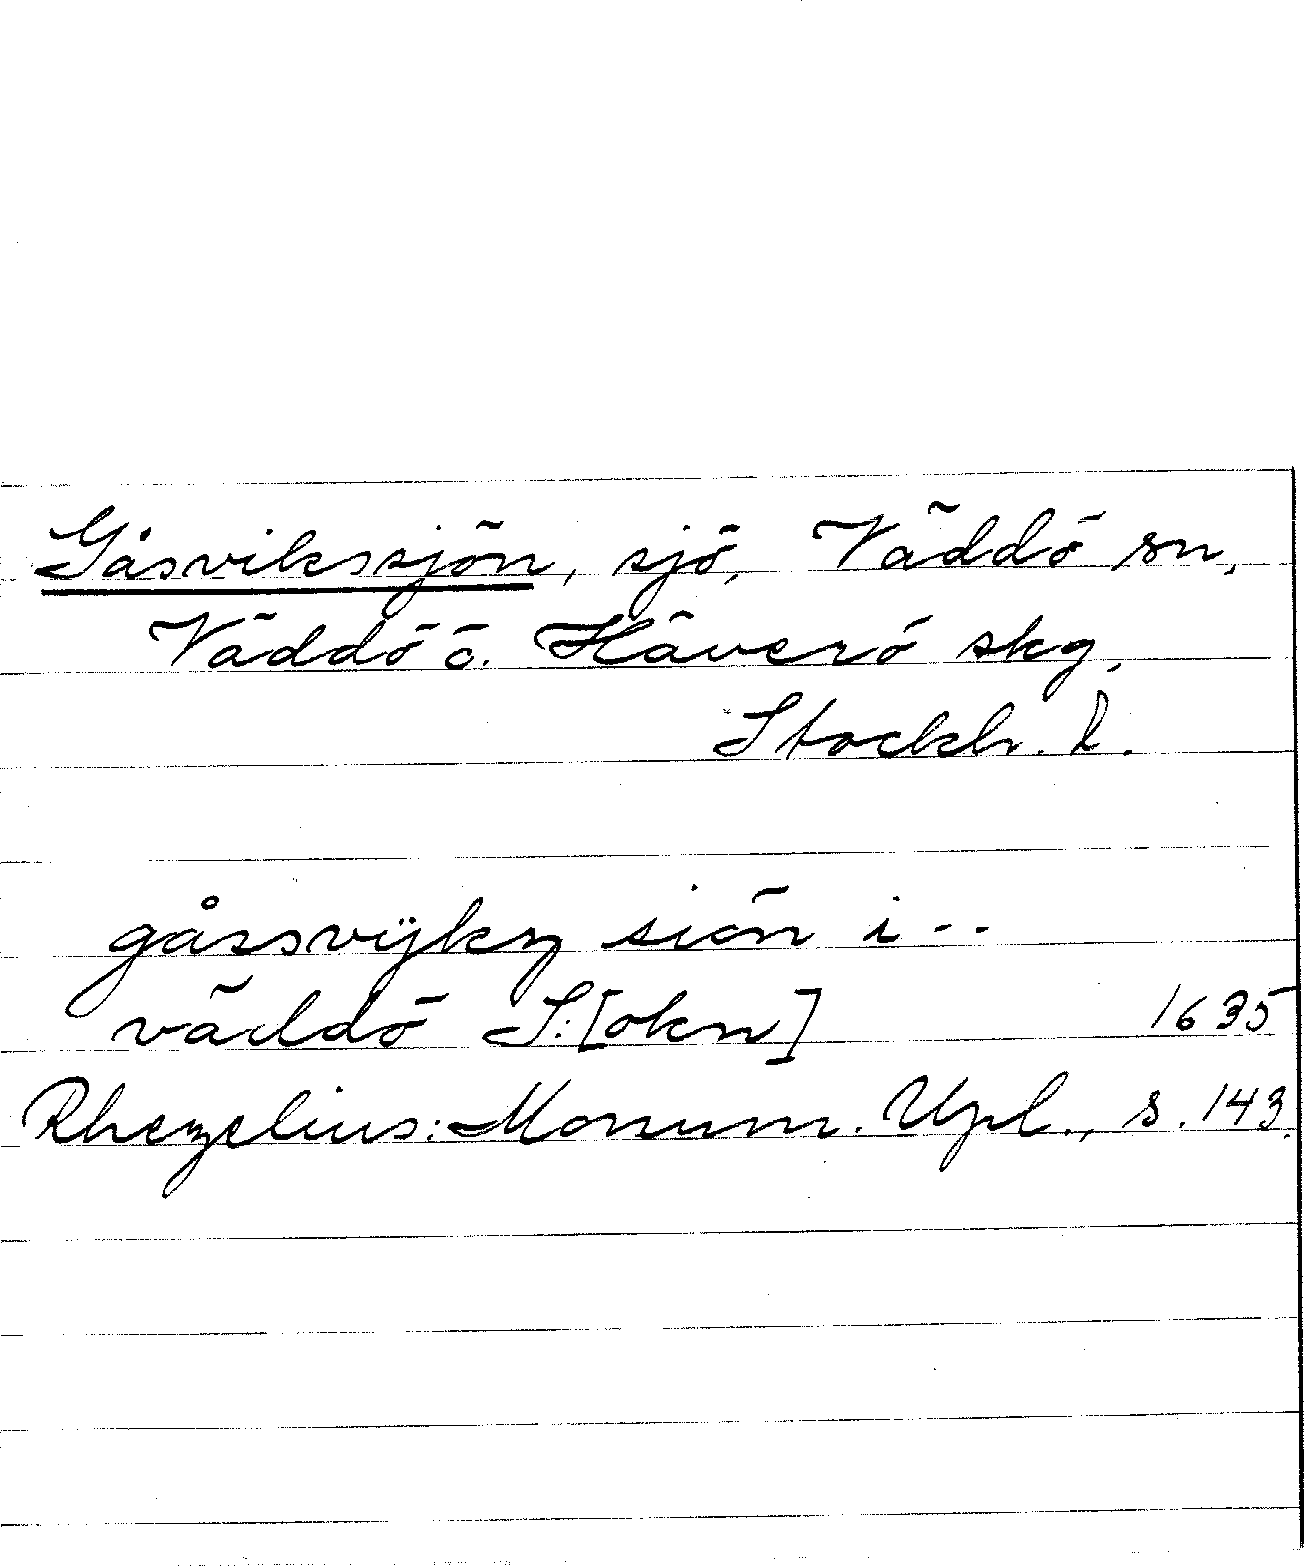 Gåsvikssjön, sjö, Väddö sn,
Väddö o. Häverö skg,
Stockh. l.
gåssvÿkz siön i --
väddö S:[okn] 1635
Rhezelius: Monum. Upl., s. 143.